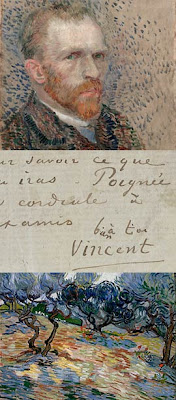 ur savoir ce que
u iras. Poignée
cordiale à
amis
bien à toi
Vincent